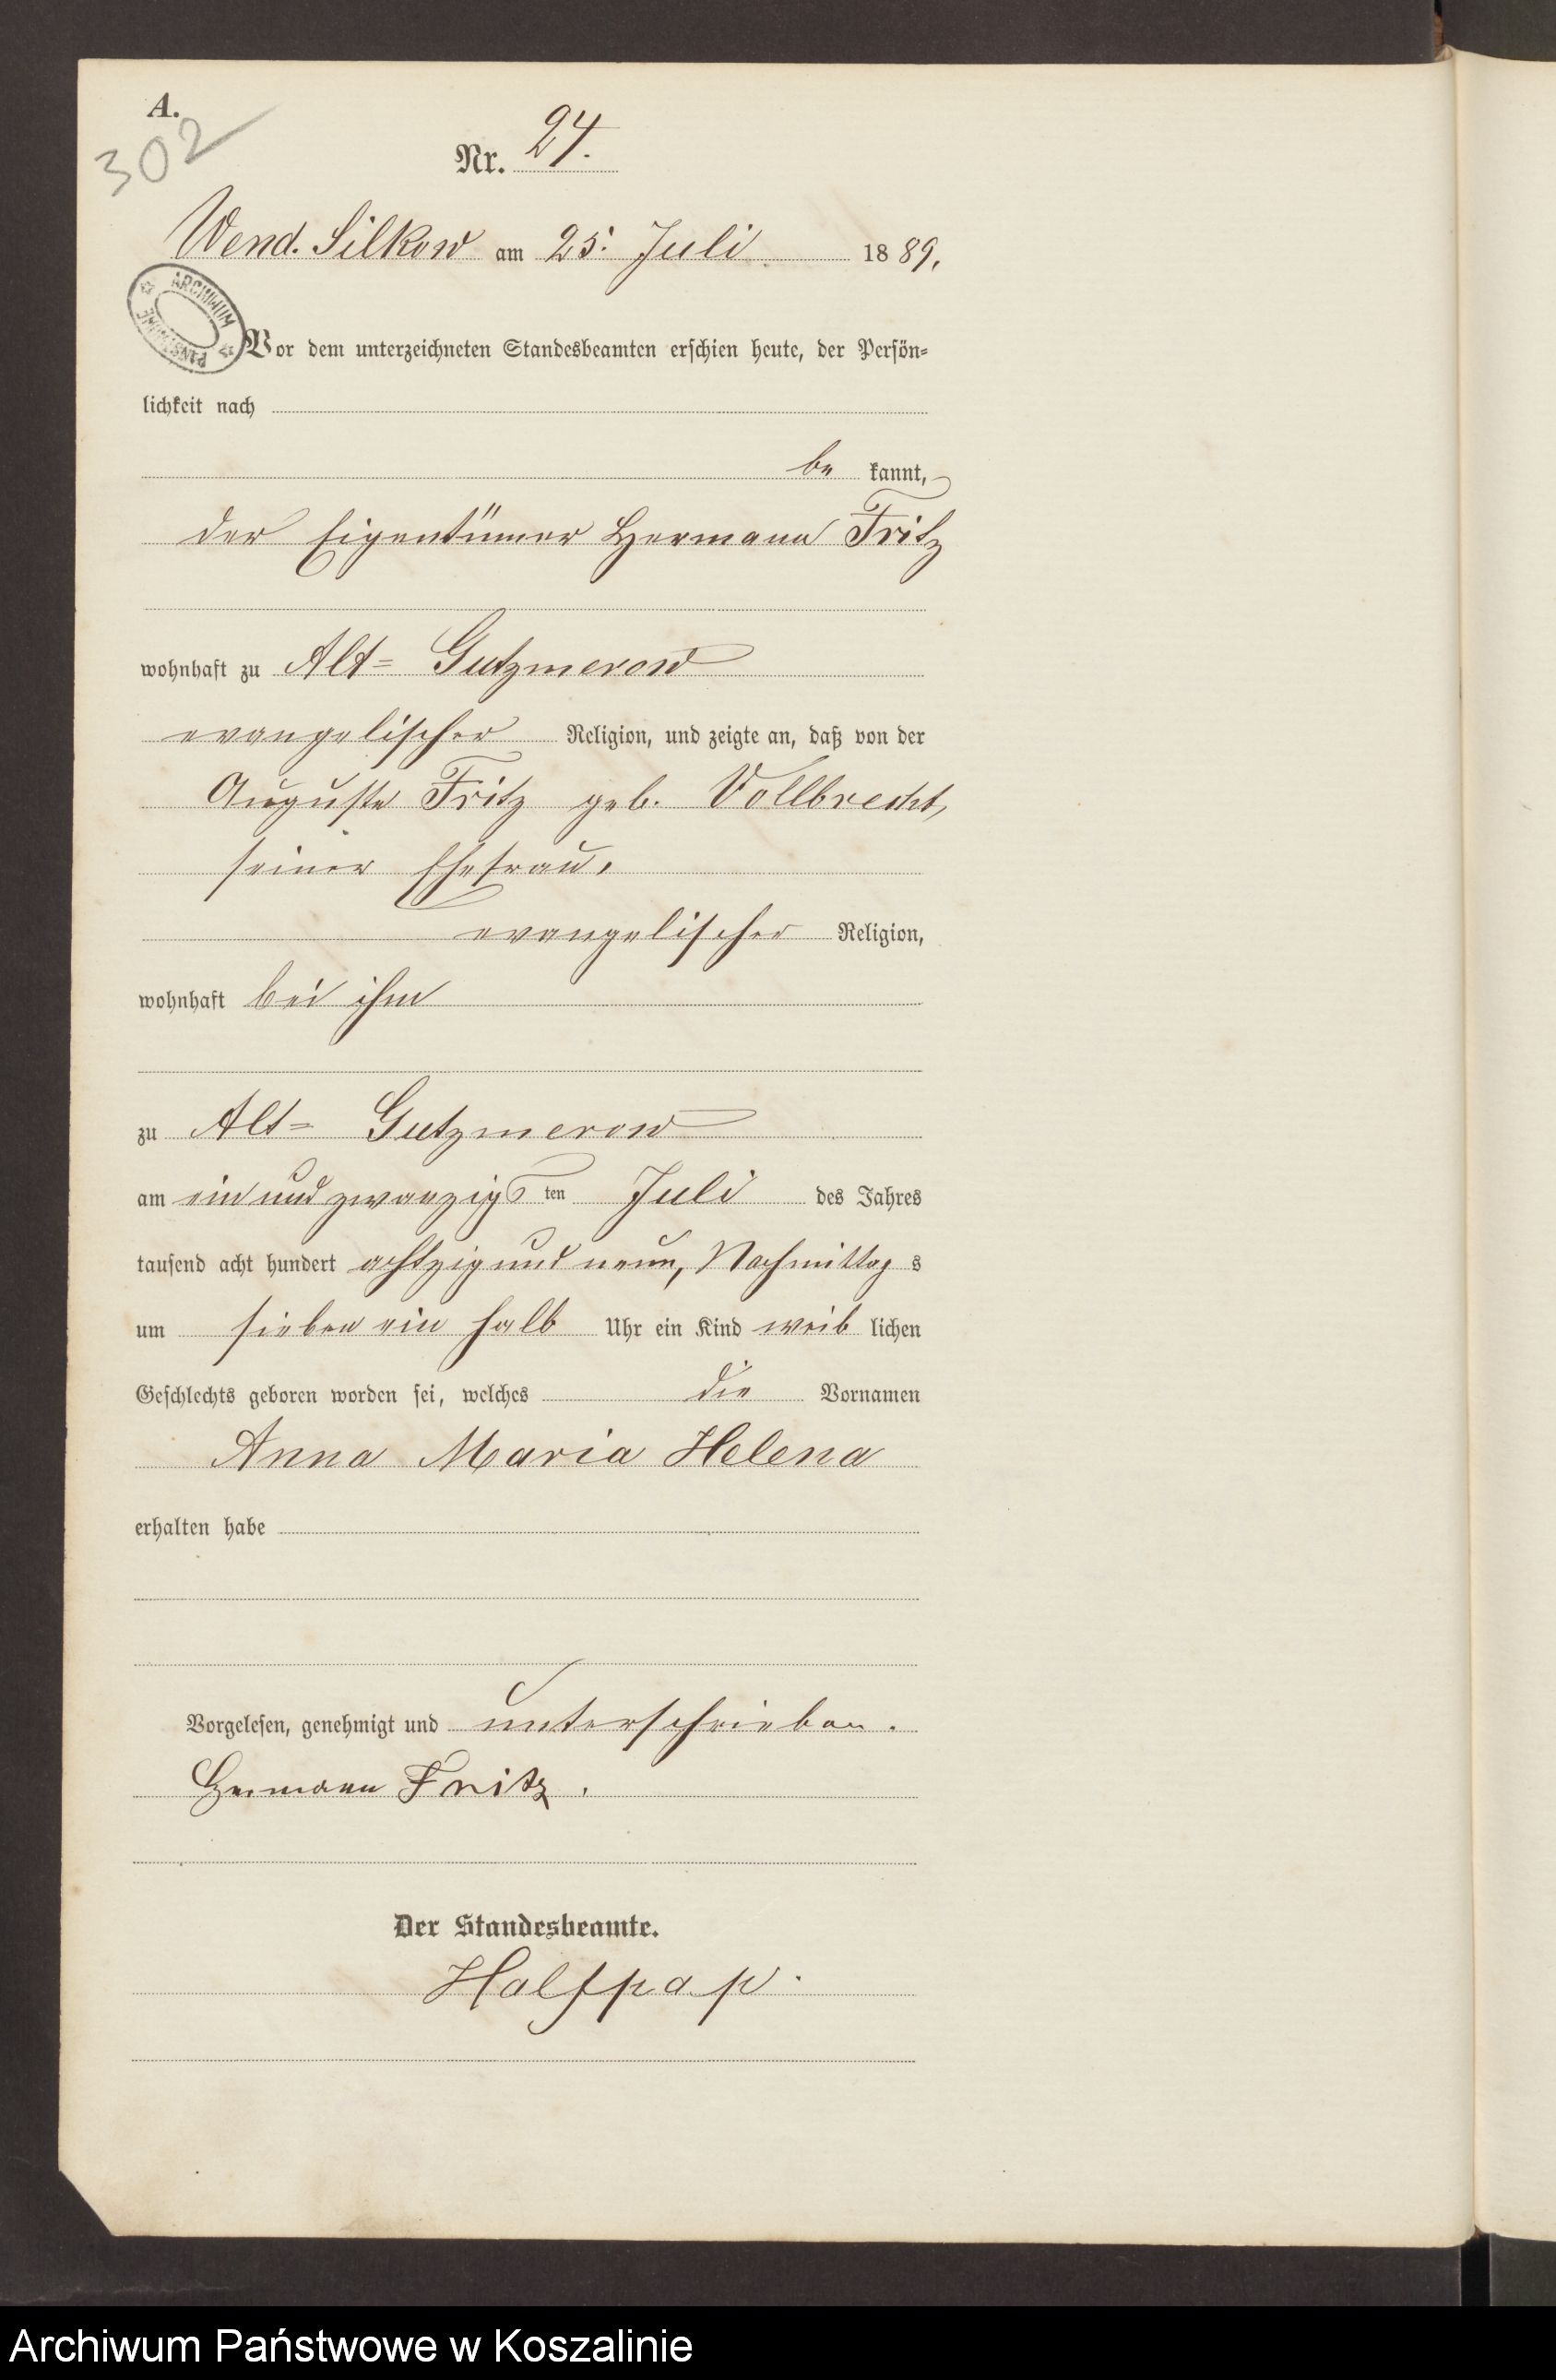 A.
302
Nr. 24.
Wend. Silkow am 25. Juli 1889.
ARCHIWUM PAŃSTWOWE
Vor dem unterzeichneten Standesbeamten erschien heute, der Persön-
lichkeit nach
be kannt,
der Eigentümer Hermann Fritz
wohnhaft zu Alt- Gutzmerow
evangelischer Religion, und zeigte an, daß von der
Auguste Fritz geb. Vollbrecht,
seiner Ehefrau,
evangelischer Religion,
wohnhaft bei ihm
zu Alt- Gutzmerow
am ein und zwanzigsten Juli des Jahres
tausend acht hundert achtzig und neun, Nachmittags
um sieben ein halb Uhr ein Kind weiblichen
Geschlechts geboren worden sei, welches die Vornamen
Anna Maria Helena
erhalten habe
Vorgelesen, genehmigt und unterschrieben.
Hermann Fritz.
Der Standesbeamte.
Halfpap.
Archiwum Państwowe w Koszalinie